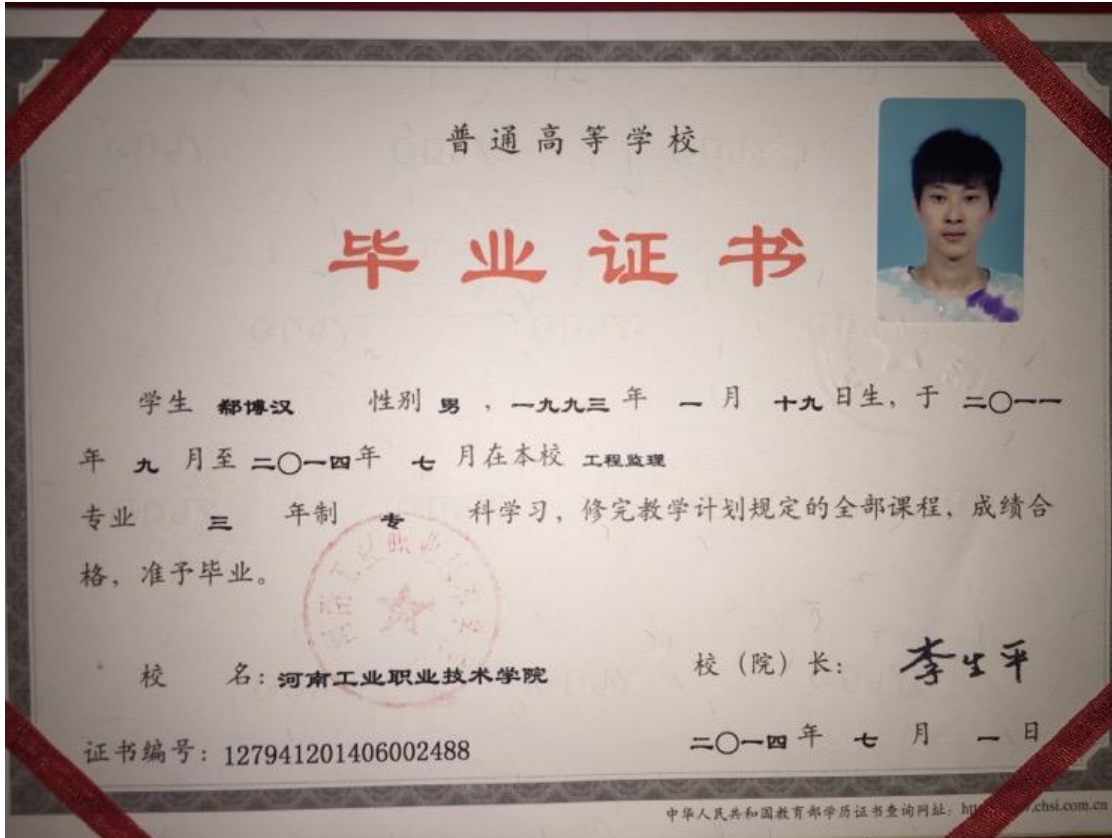 普通高等学校
毕业证书
学生 郗博汉 性别 男 ，一九九三 年 一 月 十九 日生，于 二〇一一
年 九 月至 二〇一四 年 七 月在本校 工程监理
专业 三 年制 专 科学习，修完教学计划规定的全部课程，成绩合
格，准予毕业。
校 名：河南工业职业技术学院
校（院）长：李生平
证书编号：127941201406002488
二〇一四 年 七 月 一 日
中华人民共和国教育部学历证书查询网址：.chsi.com.cn